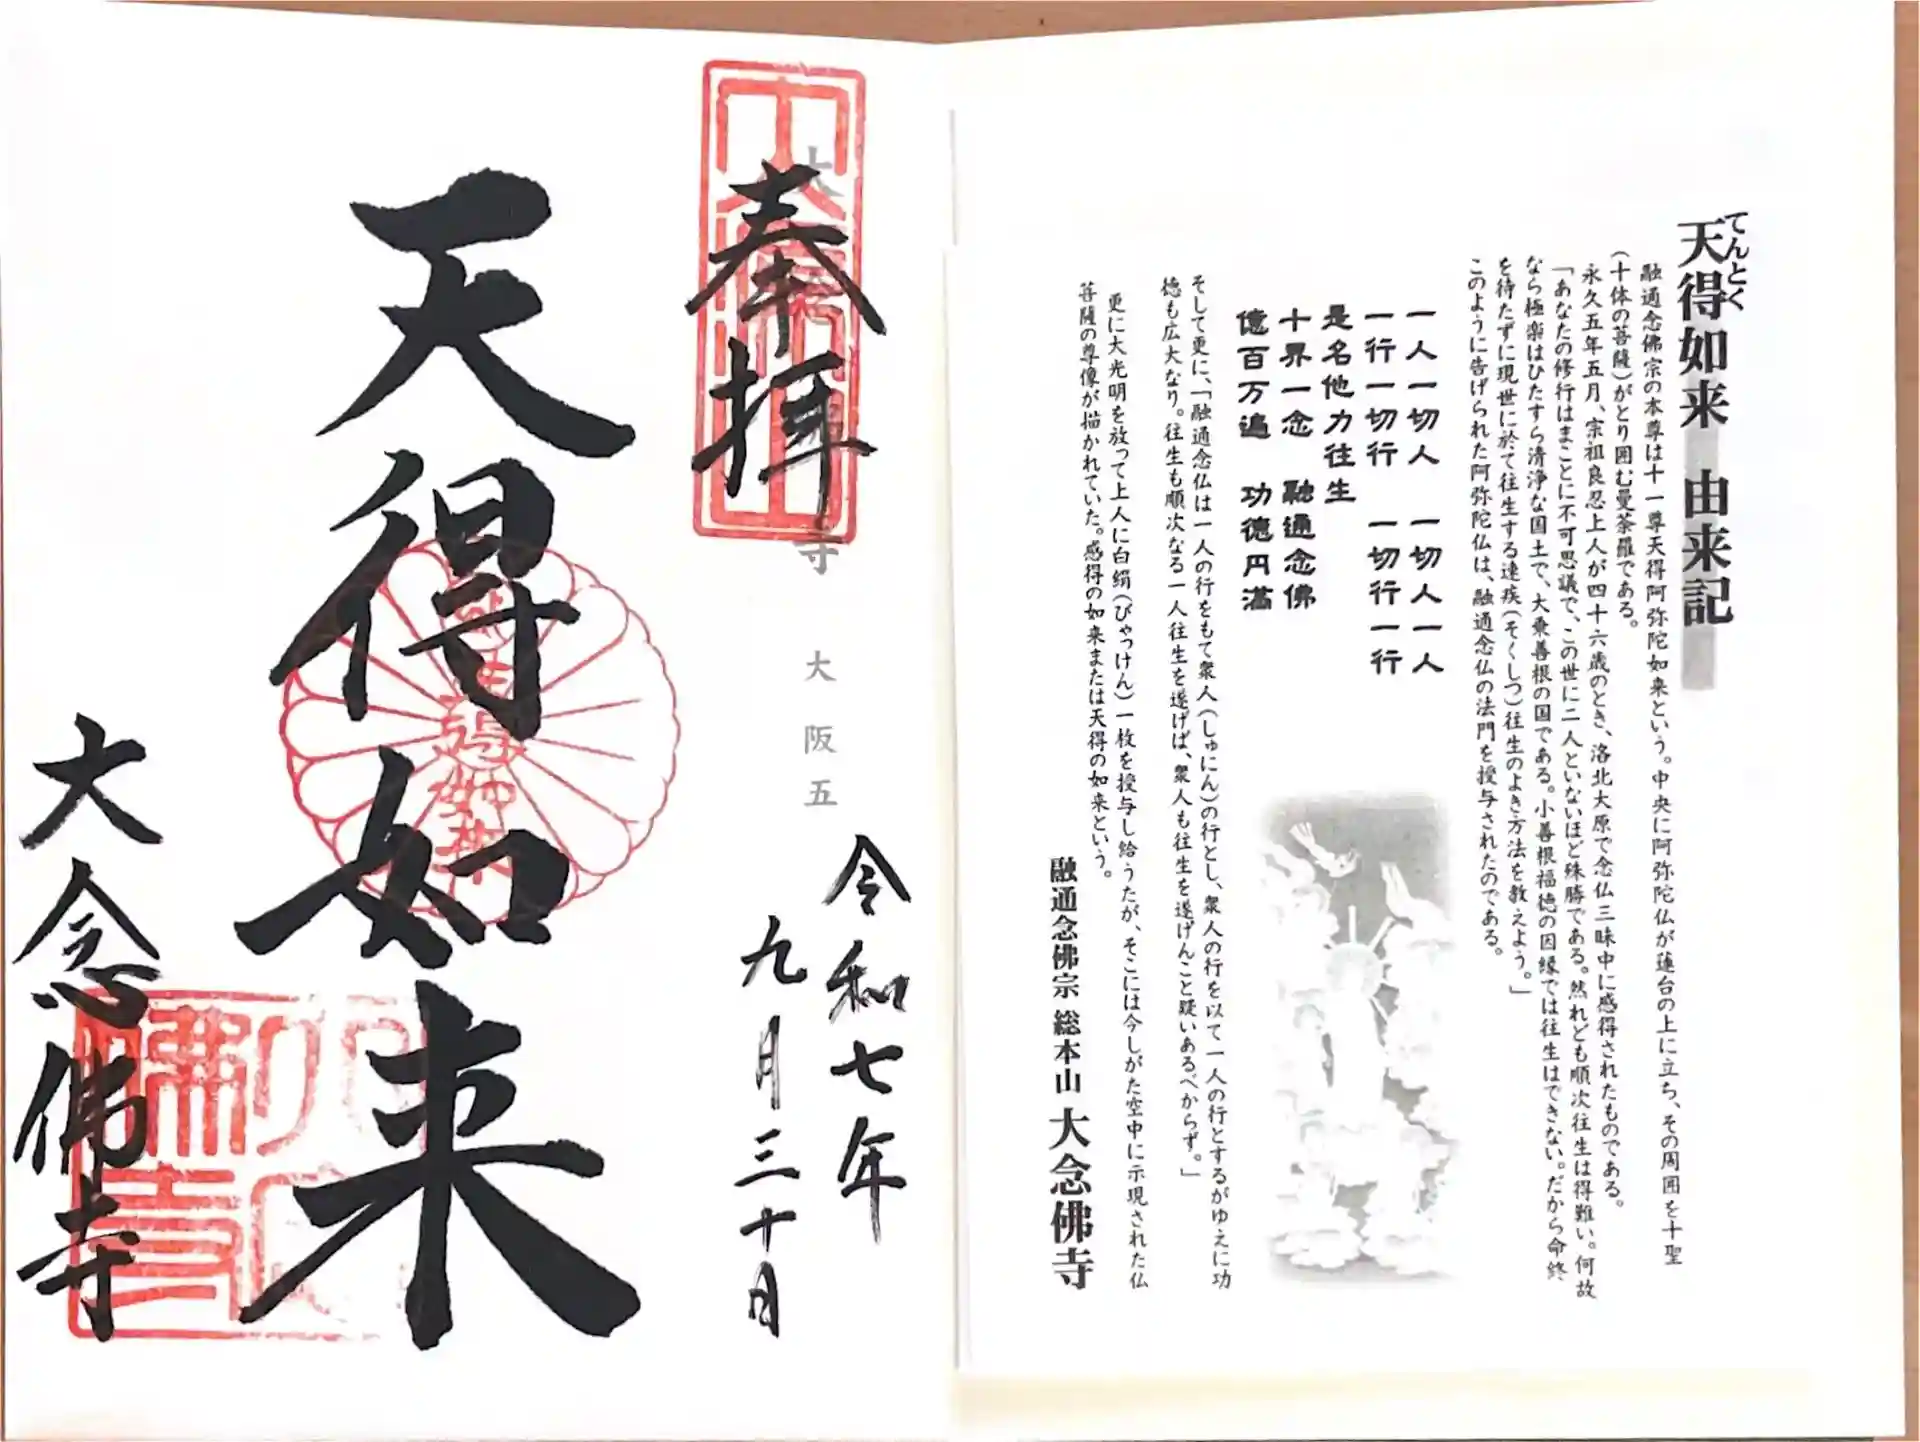 天得如来　由来記
てんとく
融通念佛宗の本尊は十一尊天得阿弥陀如来という。中央に阿弥陀仏が蓮台の上に立ち、その周囲を十聖
(十体の菩薩)がとり囲む曼荼羅である。
永久五年五月、宗祖良忍上人が四十六歳のとき、洛北大原で念仏三昧中に感得されたものである。
「あなたの修行はまことに不可思議で、この世に二人といないほど殊勝である。然れども順次往生は得難い。何故
なら極楽はひたすら清浄な国土で、大乗善根の国である。小善根福徳の因縁では往生はできない。だから命終
を待たずに現世に於て往生する速疾(そくしつ)往生のよき方法を教えよう。」
このように告げられた阿弥陀仏は、融通念仏の法門を授与されたのである。
一人一切人　一切人一人
一行一切行　一切行一行
是名他力往生
十界一念　融通念佛
億百万遍　功徳円満
そして更に、「融通念仏は一人の行をもて衆人(しゅにん)の行とし、衆人の行を以て一人の行とするがゆえに功
徳も広大なり。往生も順次なる一人往生を遂げば、衆人も往生を遂げんこと疑いあるべからず。」
更に大光明を放って上人に白絹(びゃっけん)一枚を授与し給うたが、そこには今しがた空中に示現された仏
菩薩の尊像が描かれていた。感得の如来または天得の如来という。
融通念佛宗 総本山 大念佛寺
奉拝
寺　大阪五
令和七年
九月三十日
天得如来
大念佛寺